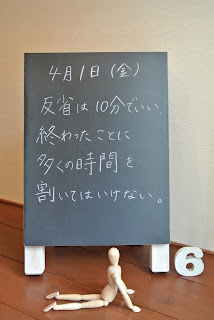 4月1日(金)
反省は10分でいい、
終わったことに
多くの時間を
割いてはいけない。
6